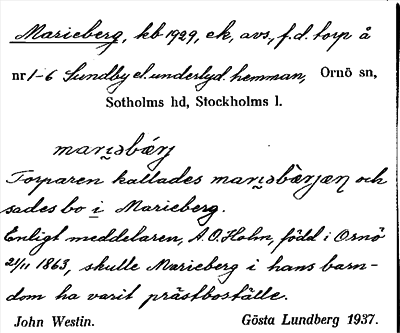 Marieberg, kb 1929, ek, avs, f.d. torp å
nr 1-6 Sundby el. underlyd. hemman, Ornö sn,
Sotholms hd, Stockholms l.
marı̯əbǽrj
Torparen kallades marı̯əbærjæn och
sades bo i Marieberg.
Enligt meddelaren, A.O. Holm, född i Ornö
21/11 1863, skulle Marieberg i hans barn-
dom ha varit prästboställe.
John Westin. Gösta Lundberg 1937.